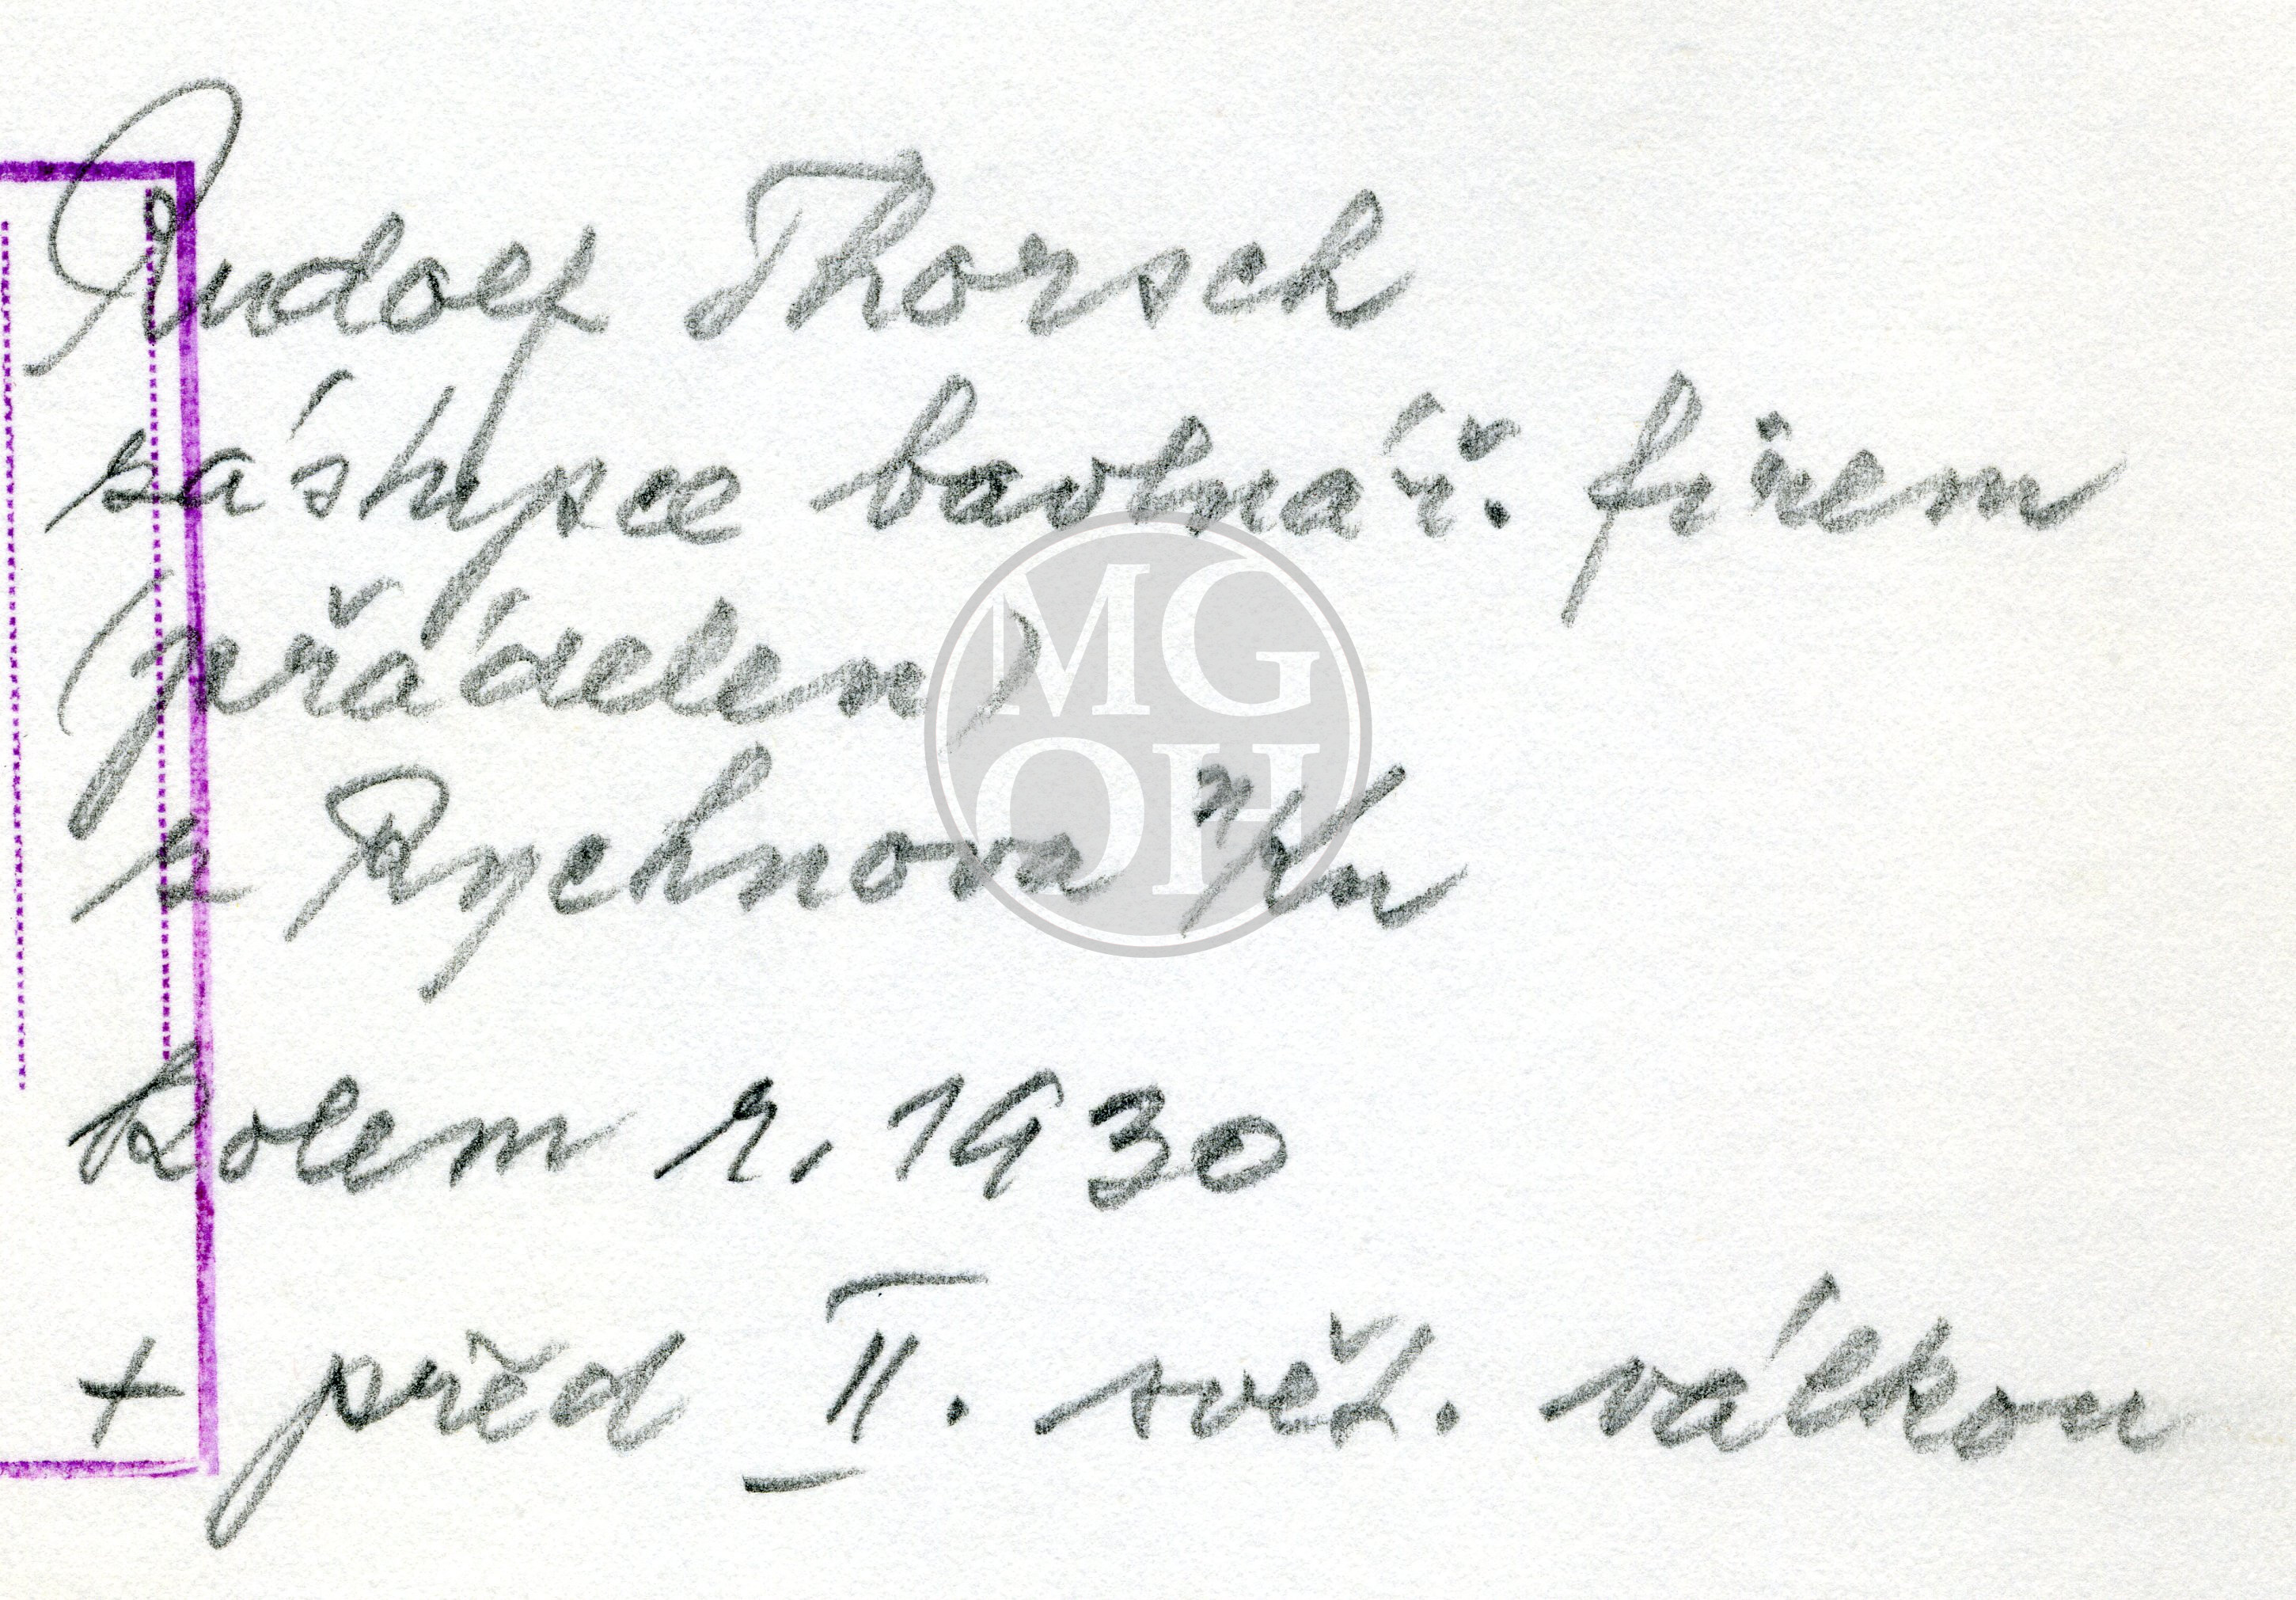 Rudolf Thorsch
zástupce bavlnář. firem
(přádelen)
z Rychnova n/Kn
kolem r. 1930
+ před II. svět. válkou
MG
OH